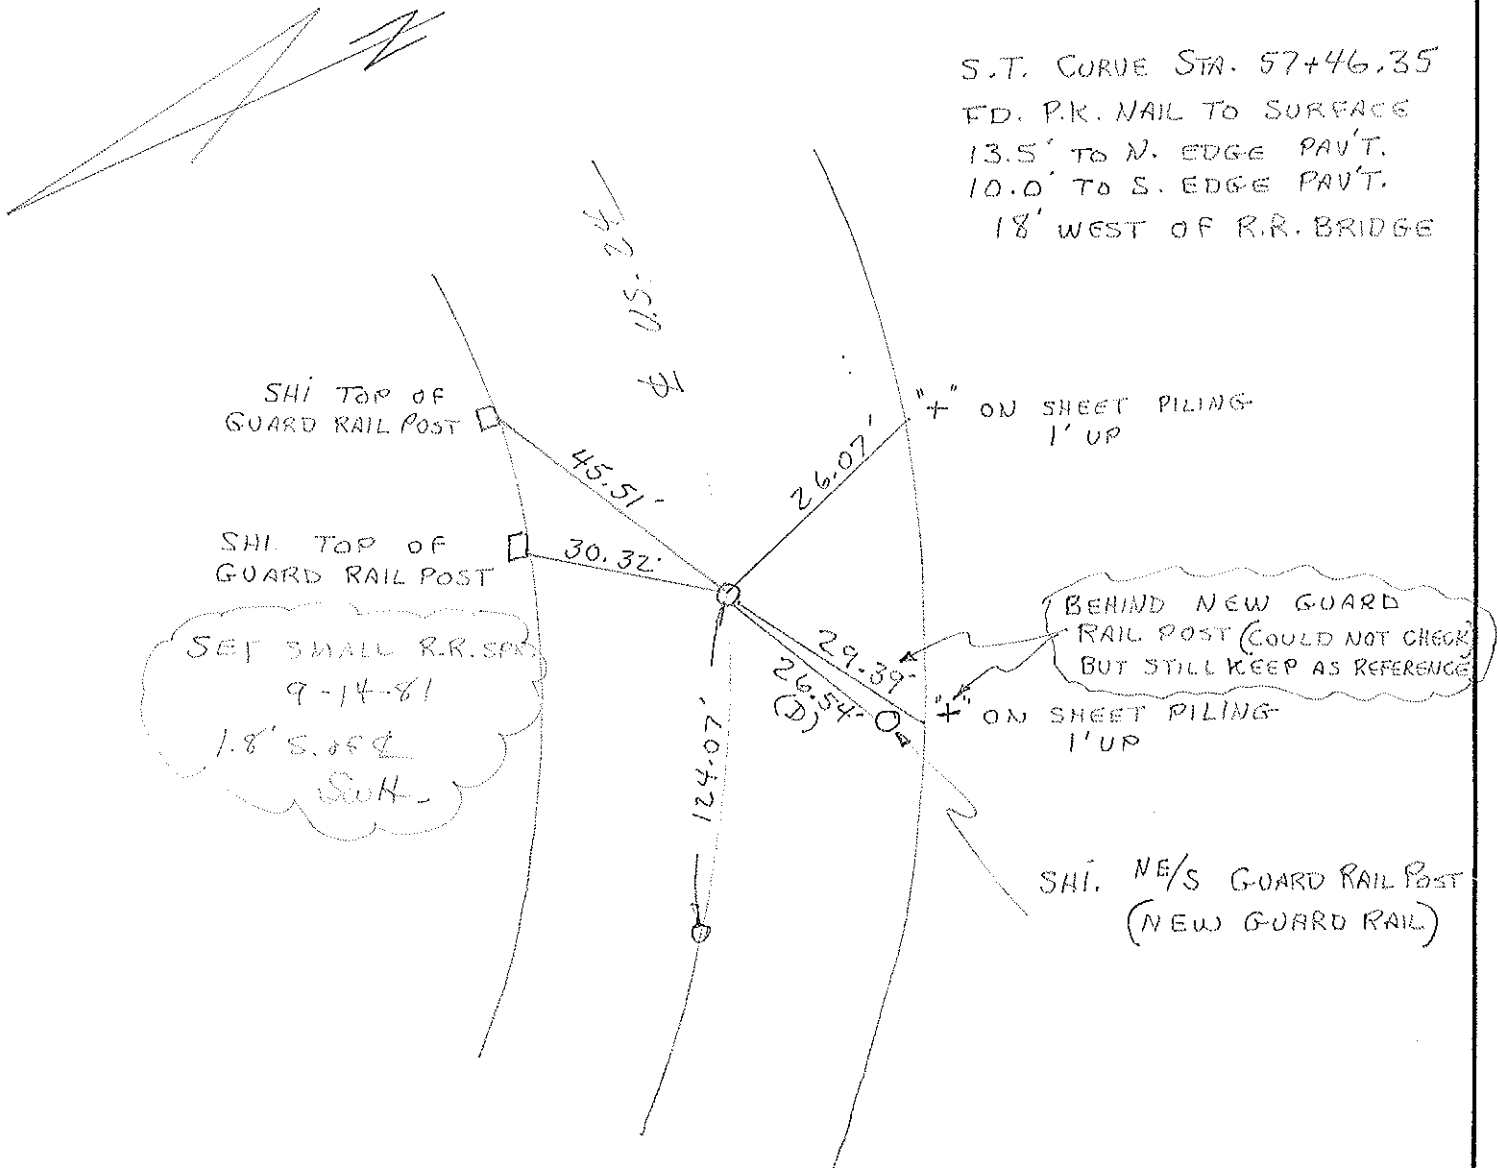 S.T. CURVE STA. 57+46.35
FD. P.K. NAIL TO SURFACE
13.5' TO N. EDGE PAV'T.
10.0' TO S. EDGE PAV'T.
18' WEST OF R.R. BRIDGE
N
℄ U.S. 24
SHI TOP OF
GUARD RAIL POST
45.51'
26.07'
"+" ON SHEET PILING
1' UP
SHI. TOP OF
GUARD RAIL POST
30.32'
BEHIND NEW GUARD
RAIL POST (COULD NOT CHECK)
BUT STILL KEEP AS REFERENCE
29.39'
26.54'
(D)
"+" ON SHEET PILING
1' UP
SET SMALL R.R.
9-14-81
1.8' S. OF ℄
124.07'
SHI. NE/S GUARD RAIL POST
(NEW GUARD RAIL)